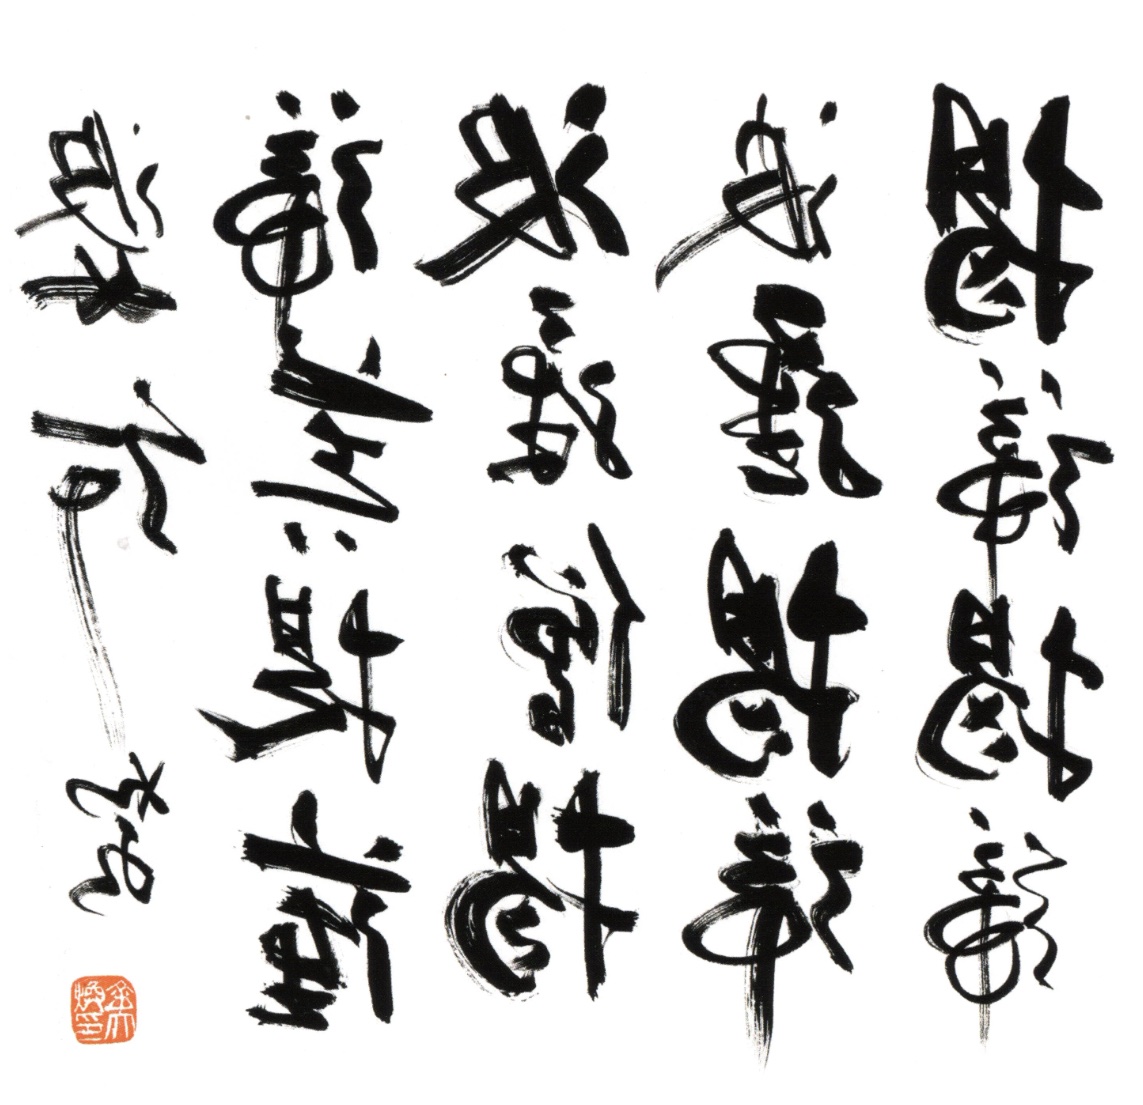 揭諦揭諦
波羅揭諦
波羅僧揭
諦菩提薩
婆訶